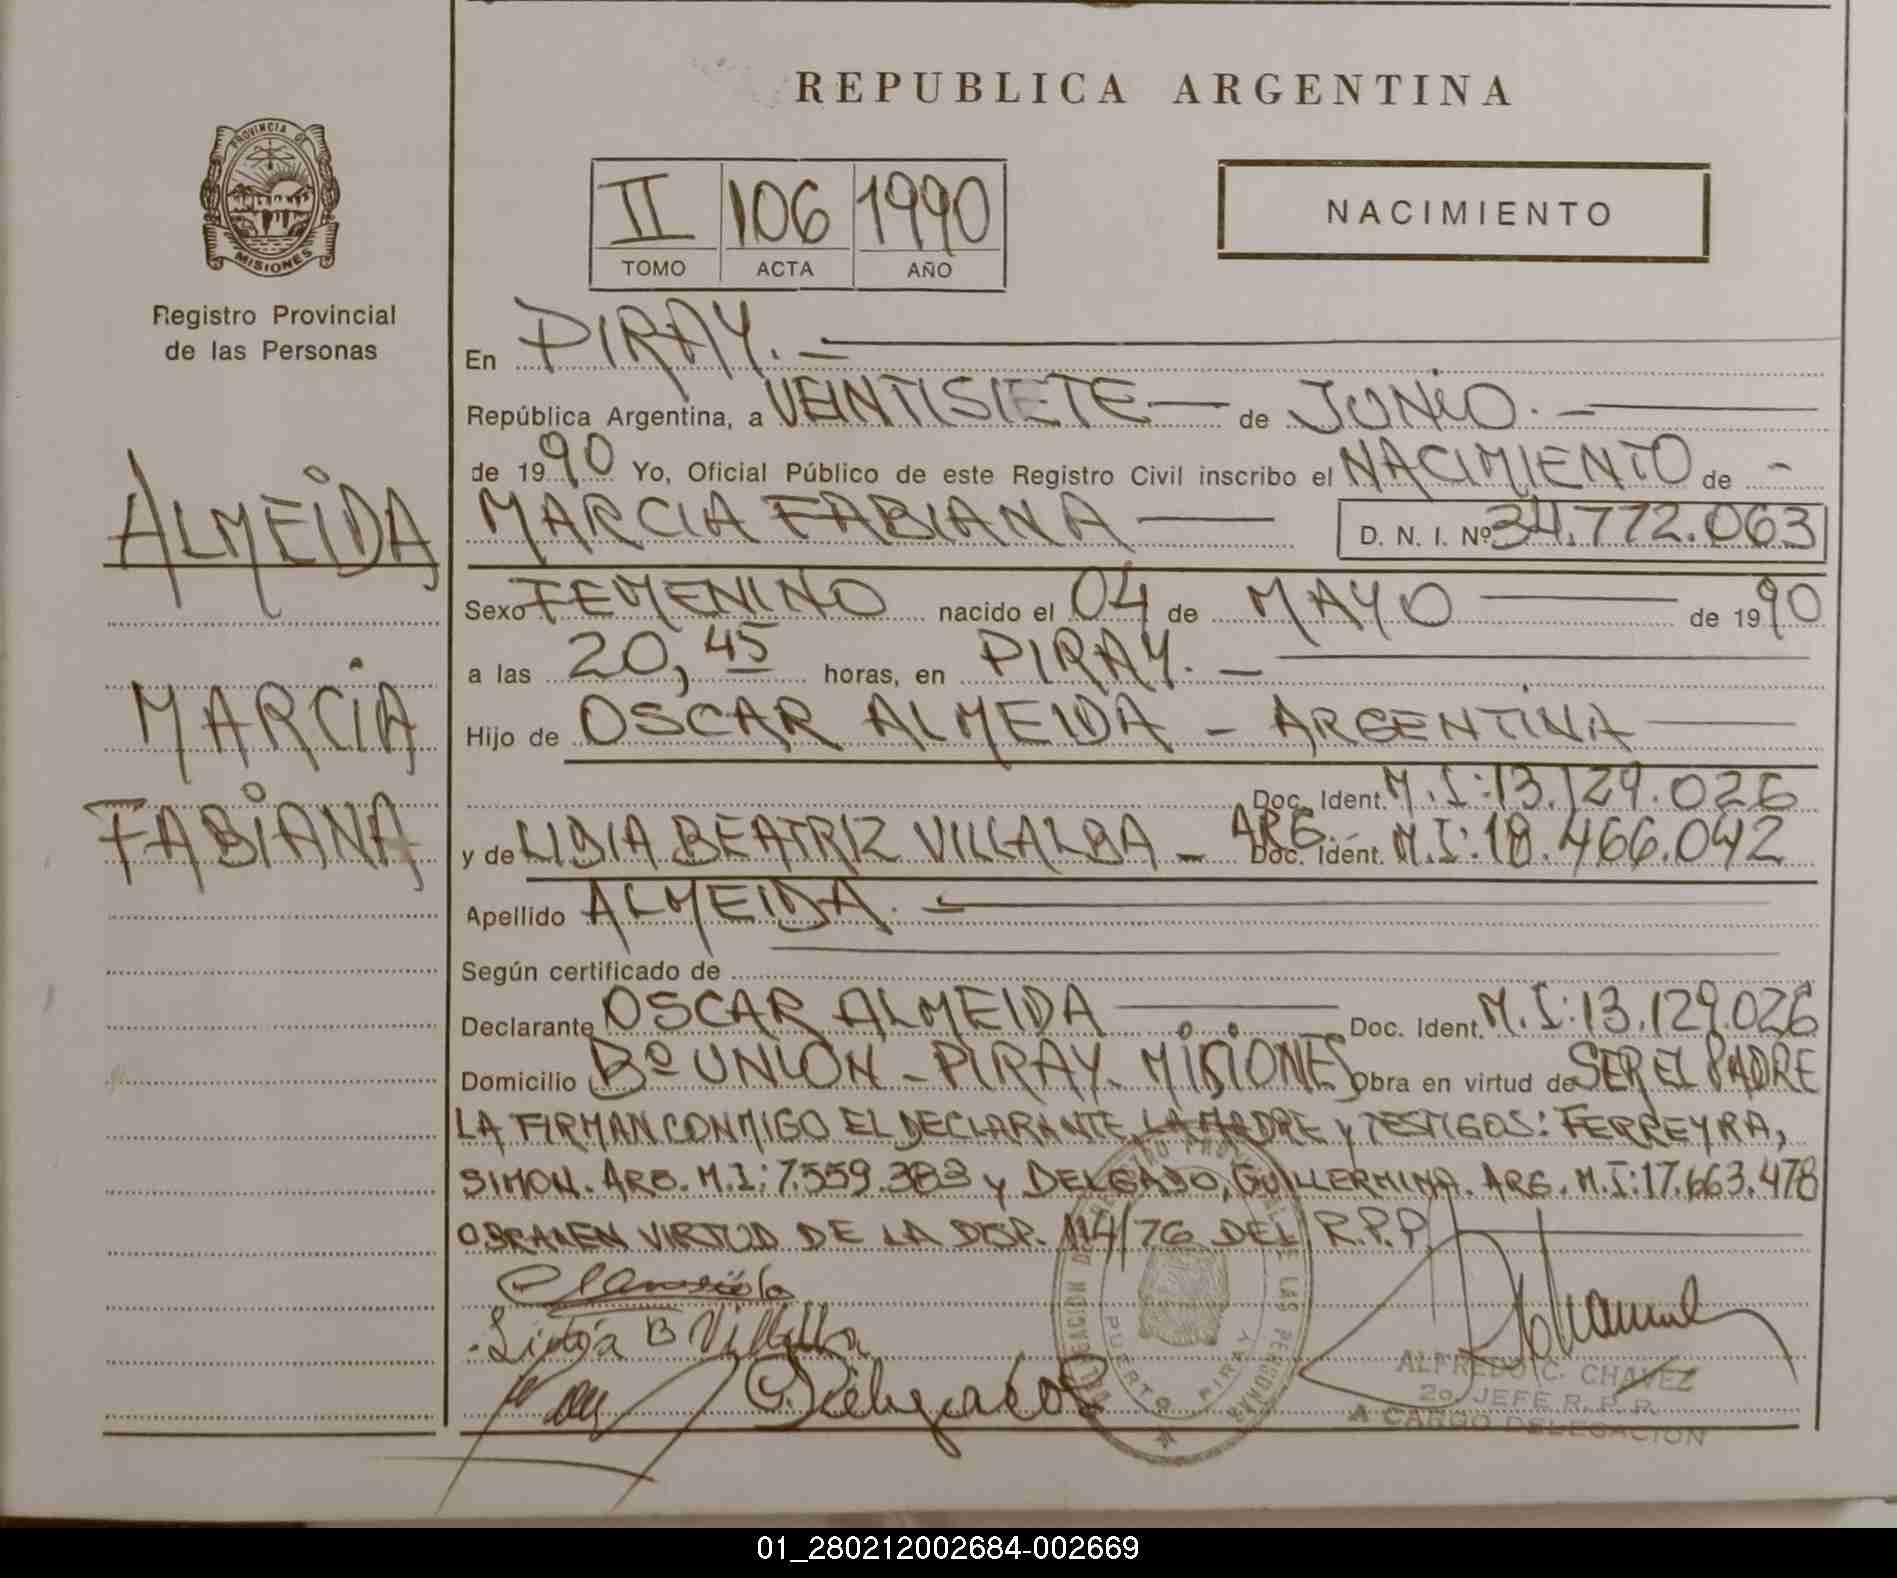 REPUBLICA ARGENTINA
PROVINCIA DE
MISIONES
Registro Provincial
de las Personas
II 106 1990
TOMO ACTA AÑO
NACIMIENTO
ALMEIDA
MARCIA
FABIANA
En PIRAY.-
República Argentina, a VEINTISIETE — de JUNIO.-
de 1990 Yo, Oficial Público de este Registro Civil inscribo el NACIMIENTO de -
MARCIA FABIANA — D. N. I. Nº 34.772.063
Sexo FEMENINO nacido el 04 de MAYO — de 1990
a las 20,45 horas, en PIRAY. —
Hijo de OSCAR ALMEIDA - ARGENTINA —
Doc. Ident. M.I:13.129.026
y de LIDIA BEATRIZ VILLALBA - ARG. Doc. Ident. M.I:18.466.042
Apellido ALMEIDA. -
Según certificado de
Declarante OSCAR ALMEIDA — Doc. Ident. M.I:13.129.026
Domicilio Bº UNION - PIRAY. MISIONES Obra en virtud de SER EL PADRE
LA FIRMAN CONMIGO EL DECLARANTE, LA MADRE y TESTIGOS: FERREYRA,
SIMON. ARG. M.I:7.559.383 y DELGADO, GUILLERMINA. ARG. M.I:17.663.478
OBRAN EN VIRTUD DE LA DISP. 114/76 DEL R.P.P.
Lidia B Villalba
G. Delgado
DE LAS PERSONAS
PUERTO PIRAY
ALFREDO C. CHAVEZ
2o. JEFE R. P. P.
A CARGO DELEGACION
01_280212002684-002669